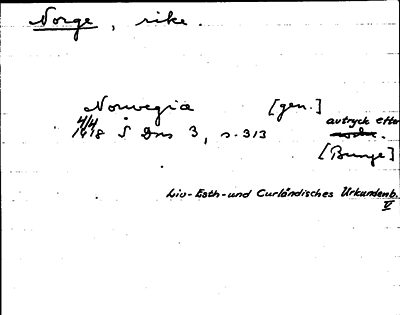 Norge, rike.
Norwegia [gen.]
4/4 1418 SDns 3, s. 313 avtryck efter
[Bunge]
Liv- Esth- und Curländisches Urkundenb.
V